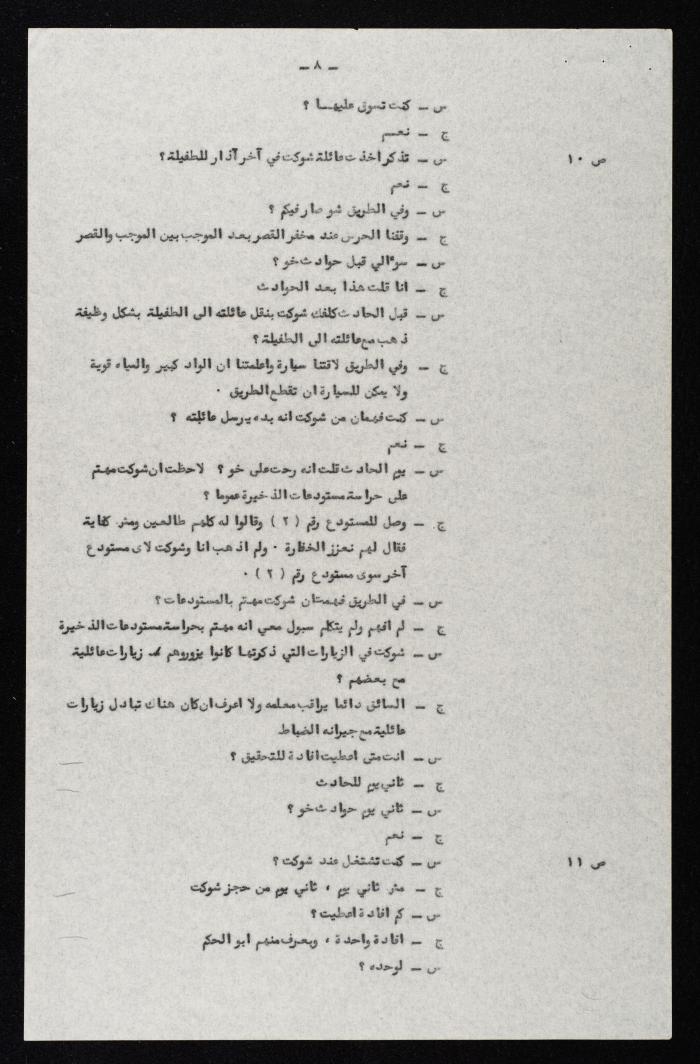 ـ ٨ ـ
س ـ كنت تسوق عليهـا ؟
ج ـ نعـم
ص ١٠ س ـ تذكر اخذت عائلة شوكت في آخر آذار للطفيلة ؟
ج ـ نعم
س ـ وفي الطريق شو صار فيكم ؟
ج ـ وقفنا الحرس عند مخفر القصر بعد الموجب بين الموجب والقصر
س ـ سوءالي قبل حوادث خو ؟
ج ـ انا قلت هذا بعد الحوادث
س ـ قبل الحادث كلفك شوكت بنقل عائلته الى الطفيلة بشكل وظيفة
ذهب مع عائلته الى الطفيلة ؟
ج ـ وفي الطريق لاقتنا سيارة واعلمتنا ان الواد كبير والمياه قوية
ولا يمكن للسيارة ان تقطع الطريق ٠
س ـ كنت فهمان من شوكت انه بده يرسل عائلته ؟
ج ـ نعم
س ـ يوم الحادث قلت انه رحت على خو ؟ لاحظت ان شوكت مهتم
على حراسة مستودعات الذخيرة عموما ؟
ج ـ وصل للمستودع رقم ( ٢ ) وقالوا له كلهم طالعين ومش كفاية
فقال لهم نعزز الخفارة ٠ ولم اذهب انا وشوكت لاى مستودع
آخر سوى مستودع رقم ( ٢ ) ٠
س ـ في الطريق فهمت ان شوكت مهتم بالمستودعات ؟
ج ـ لم افهم ولم يتكلم سبول معي انه مهتم بحراسة مستودعات الذخيرة
س ـ شوكت في الزيارات التي ذكرتها كانوا يزوروهم زيارات عائلية
مع بعضهم ؟
ج ـ السائق دائما يراقب معلمه ولا اعرف ان كان هناك تبادل زيارات
عائلية مع جيرانه الضباط
س ـ انت متى اعطيت افادة للتحقيق ؟
ج ـ ثاني يوم للحادث
س ـ ثاني يوم حوادث خو ؟
ج ـ نعم
ص ١١ س ـ كنت تشتغل عند شوكت ؟
ج ـ مش ثاني يوم ، ثاني يوم من حجز شوكت
س ـ كم افادة اعطيت ؟
ج ـ افادة واحدة ، وبعرف منهم ابو الحكم
س ـ لوحده ؟